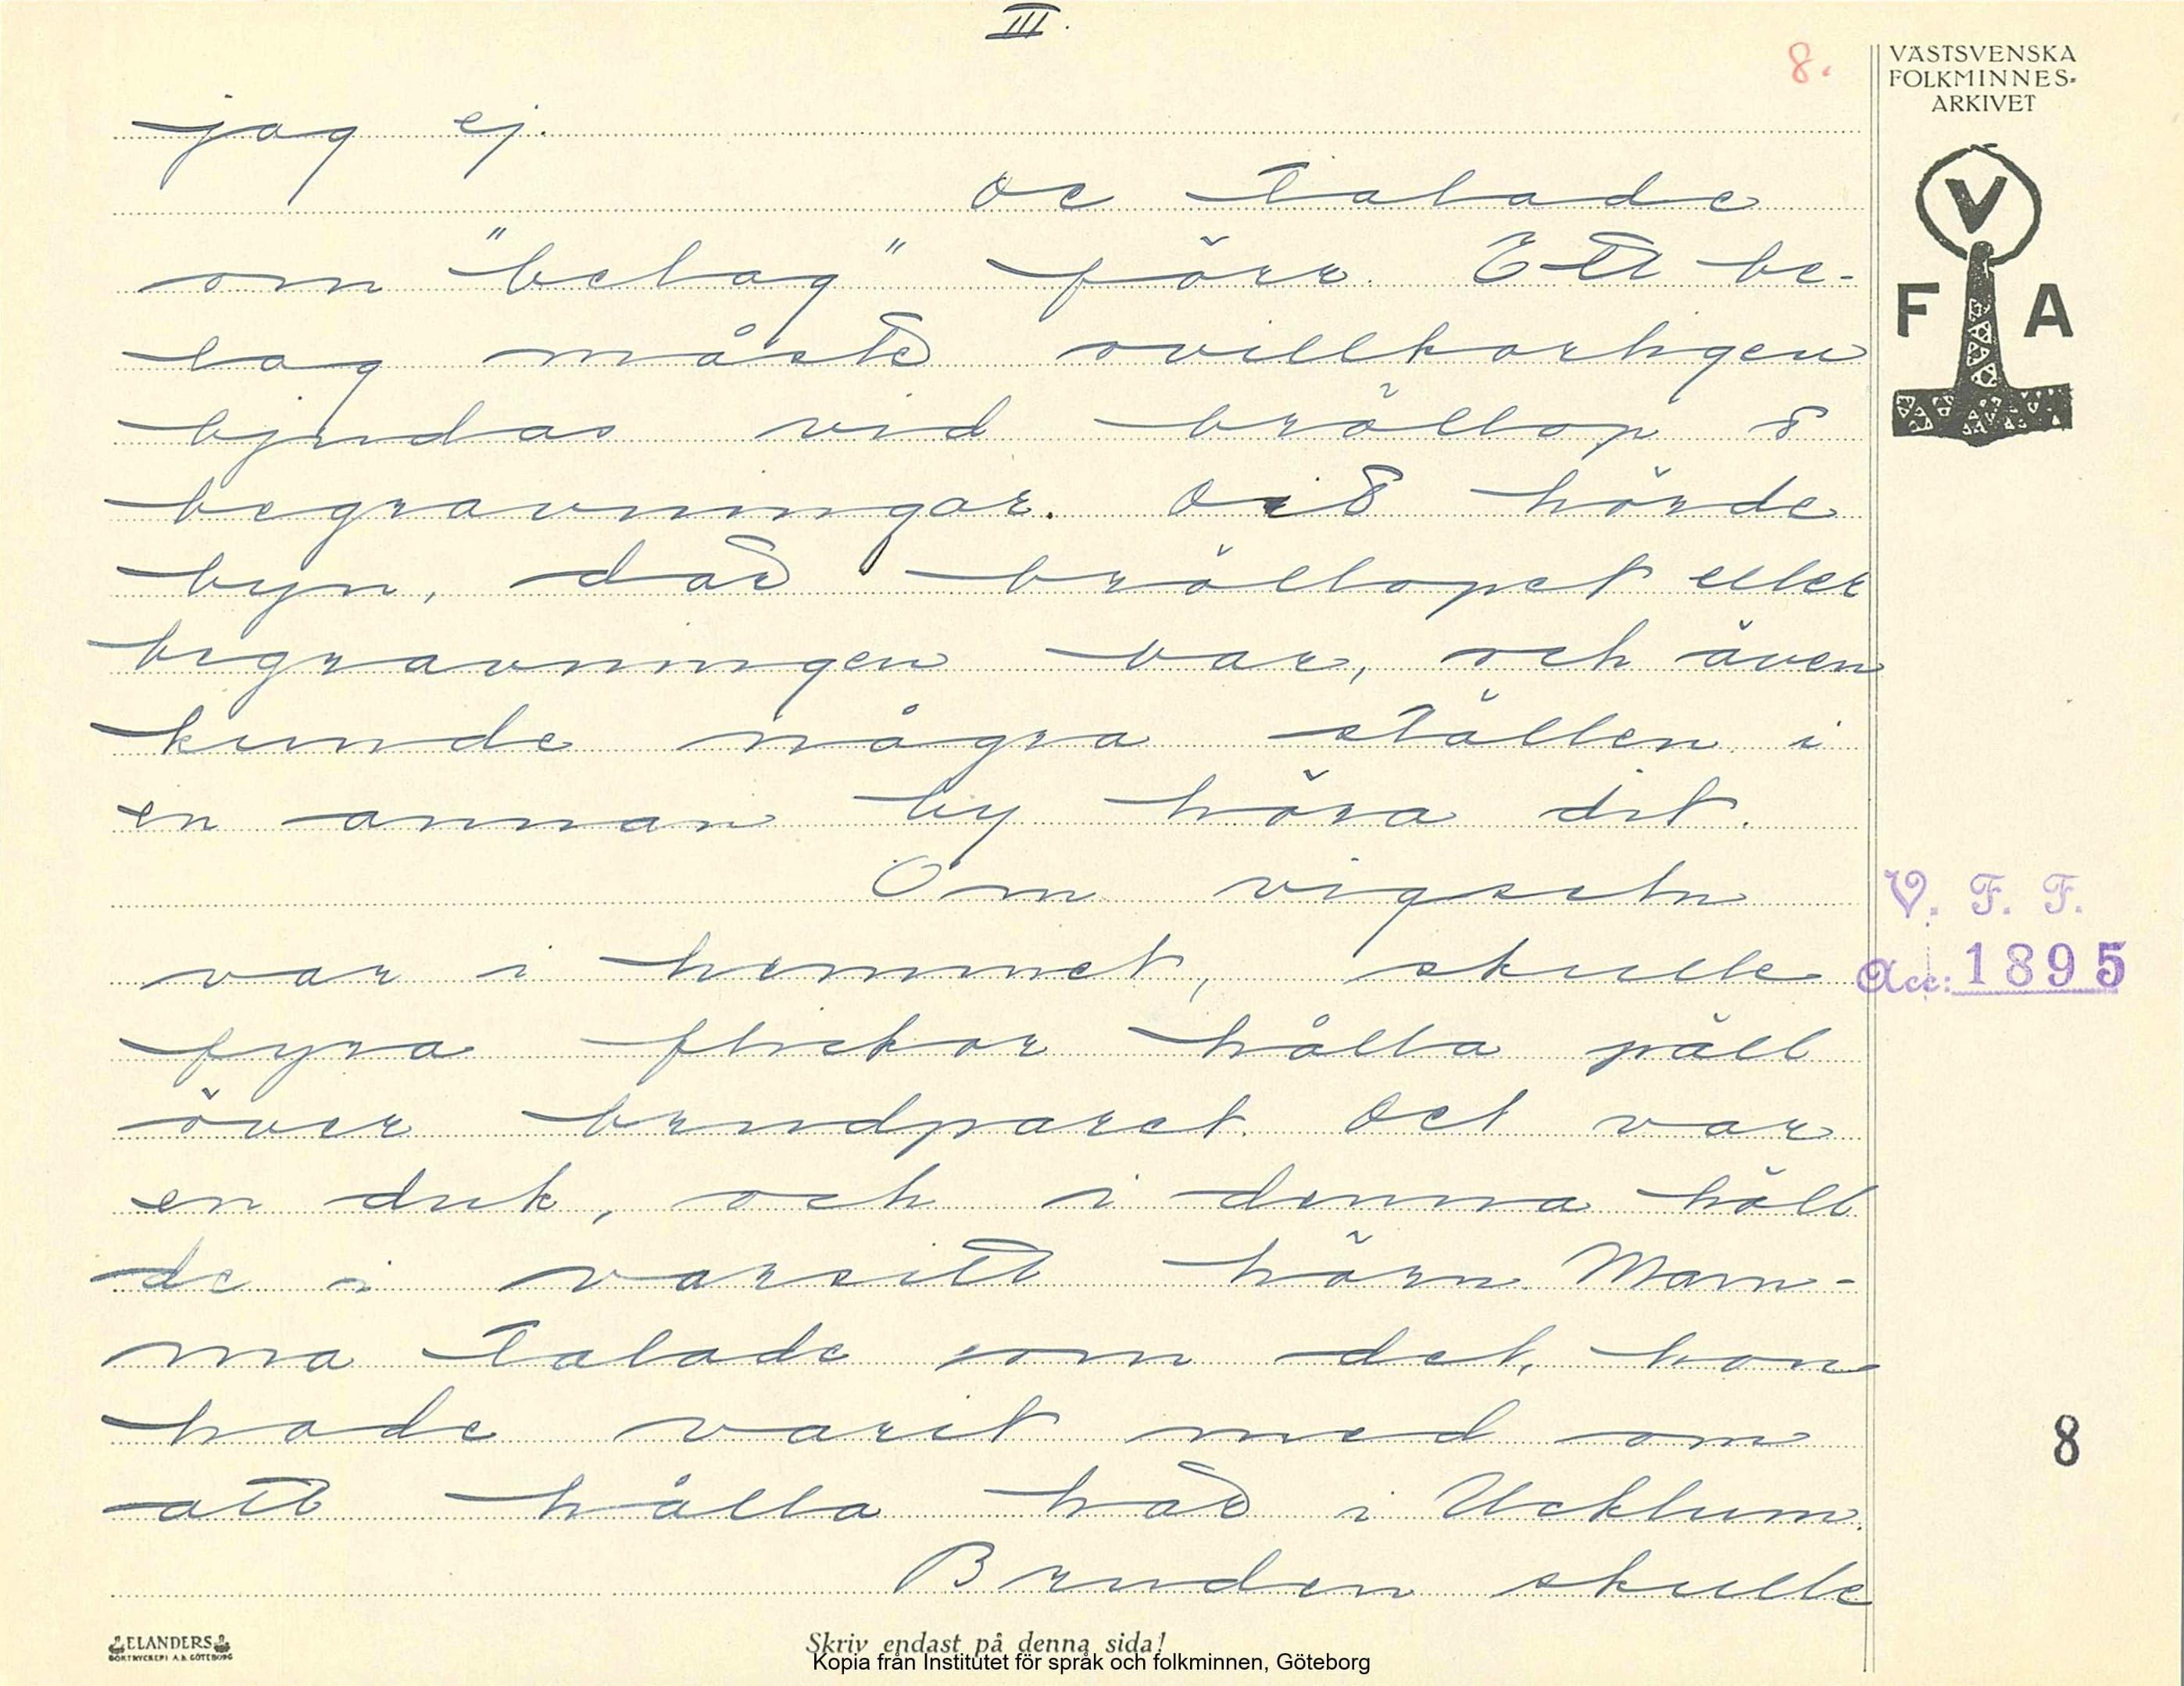 III.
8.
VÄSTSVENSKA
FOLKMINNES-
ARKIVET
V
F A
jag ej.
De talade
om "belag" förr. Ett be-
lag måste ovillkorligen
bjudas vid bröllop &
begravningar. Dit hörde
byn, där bröllopet eller
begravningen var, och även
kunde några ställen i
en annan by höra dit.
Om vigseln
var i hemmet, skulle
fyra flickor hålla päll
över brudparet. Det var
en duk, och i denna höll
de i varsitt hörn. Mam-
ma talade om det, hon
hade varit med om
att hålla här i Ucklum.
Bruden skulle
V. F. F.
Acc: 1895
8
ELANDERS
BOKTRYCKERI A.B. GÖTEBORG
Skriv endast på denna sida!
Kopia från Institutet för språk och folkminnen, Göteborg